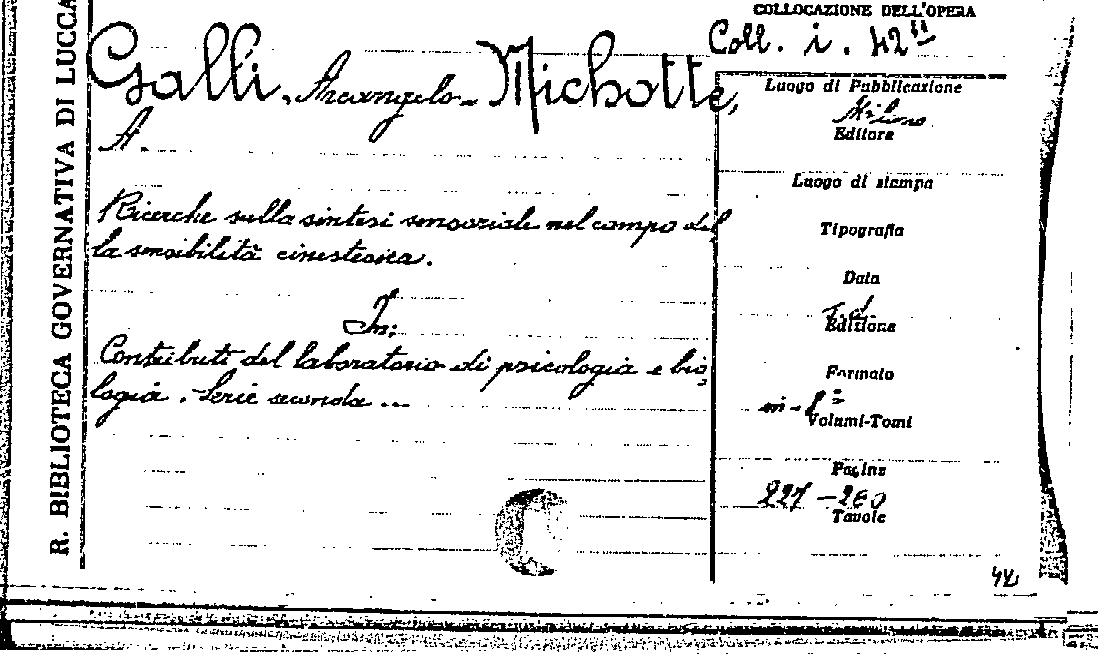 R. BIBLIOTECA GOVERNATIVA DI LUCCA
COLLOCAZIONE DELL'OPERA
Coll. i. 42
Galli, Arcangelo - Michotte,
A.
Ricerche sulla sintesi sensoriale nel campo del
la sensibilità cinestesica.
In:
Contributi del laboratorio di psicologia e bio
logia. Serie seconda ...
Luogo di Pubblicazione
Milano
Editore
Luogo di stampa
Tipografia
Data
s.d.
Edizione
Formato
in-8°
Volumi-Tomi
Pagine
227-280
Tavole